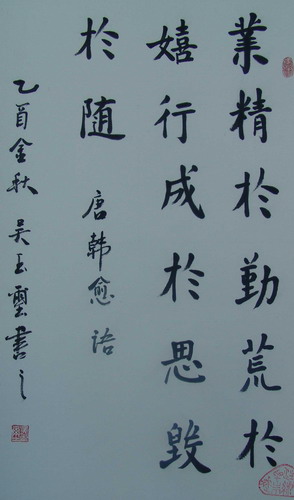 業精於勤荒於
嬉行成於思毀
於随 唐韓愈语
乙酉金秋 吴玉書之